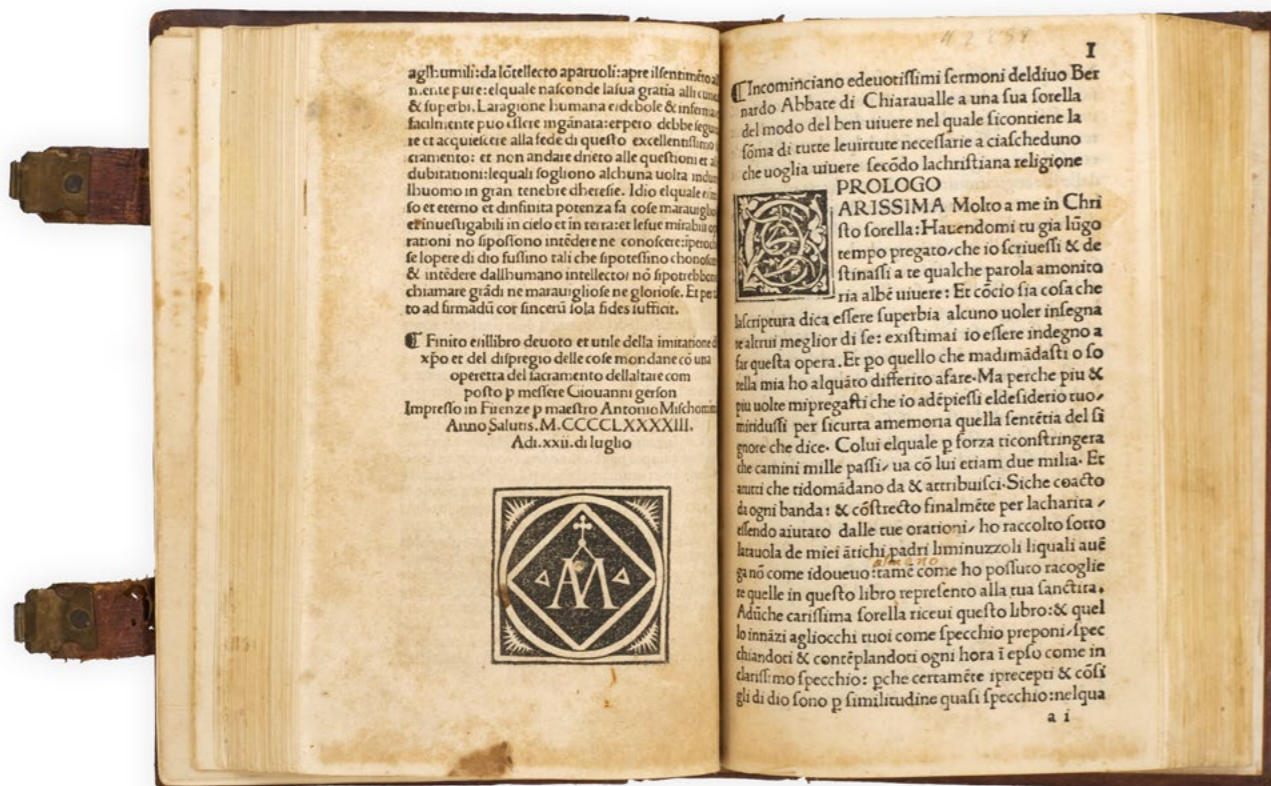 aglhumili: da lõtellecto aparuoli: apre ilsentimẽto
mente pure: elquale nasconde lasua gratia alli
& superbi. Laragione humana e debole & inferma
facilmente puo essere ingãnata: et pero debbe
re et acquiescere alla fede di questo excellentissimo
cramento: et non andare drieto alle questioni et
dubitationi: lequali sogliono alchuna uolta
lhuomo in gran tenebre dheresie. Idio elquale
so et eterno et dinfinita potenza fa cose
et inuestigabili in cielo et in terra: et lesue mirabili
rationi no sipossono intẽdere ne conoscere: ĩperoche
se lopere di dio fussino tali che sipotessino
& intẽdere dallhumano intellecto/ nõ sipotrebbono
chiamare grãdi ne marauigliose ne gloriose. Et
to ad firmadũ cor sincerũ sola fides sufficit.
❡ Finito eillibro deuoto et utile della imitatione
xp̃o et del dispregio delle cose mondane cõ una
operetta del sacramento dellaltare com
posto p̱ messere Giouanni gerson
Impresso in Firenze p̱ maestro Antonio
Anno Salutis. M.CCCCLXXXXIII.
Adi. xxii. di luglio
AM
1
❡Incominciano edeuotissimi sermoni deldiuo Ber
nardo Abbate di Chiaraualle a una sua sorella
del modo del ben uiuere nel quale sicontiene la
sõma di tutte leuirtute necessarie a ciascheduno
che uoglia uiuere secõdo lachristiana religione
PROLOGO
C ARISSIMA Molto a me in Chri
sto sorella: Hauendomi tu gia lũgo
tempo pregato/ che io scriuessi & de
stinassi a te qualche parola amonito
ria albẽ uiuere: Et cõcio sia cosa che
lascriptura dica essere superbia alcuno uoler insegna
re altrui meglior di se: existimai io essere indegno a
far questa opera. Et po quello che madimãdasti o so
rella mia ho alquãto differito afare. Ma perche piu &
piu uolte mipregasti che io adẽpiessi eldesiderio tuo/
miridussi per sicurta amemoria quella sentẽtia del si
gnore che dice. Colui elquale p̱ forza ticonstringera
che camini mille passi/ ua cõ lui etiam due milia. Et
atutti che tidomãdano da & attribuisci. Siche coacto
da ogni banda: & cõstrecto finalmẽte per lacharita/
essendo aiutato dalle tue orationi/ ho raccolto sotto
latauola de miei ãtichi padri liminuzzoli liquali auẽ
almeno
ga nõ come idoueuo: tamẽ come ho possuto racoglie
re quelle in questo libro represento alla tua sanctita.
Adũche carissima sorella riceui questo libro: & quel
lo innãzi agliocchi tuoi come specchio preponi/ spec
chiandoti & contẽplandoti ogni hora ĩ epso come in
clarissimo specchio: p̱che certamẽte iprecepti & cõsi
gli di dio sono p̱ similitudine quasi specchio: nelqua
a i